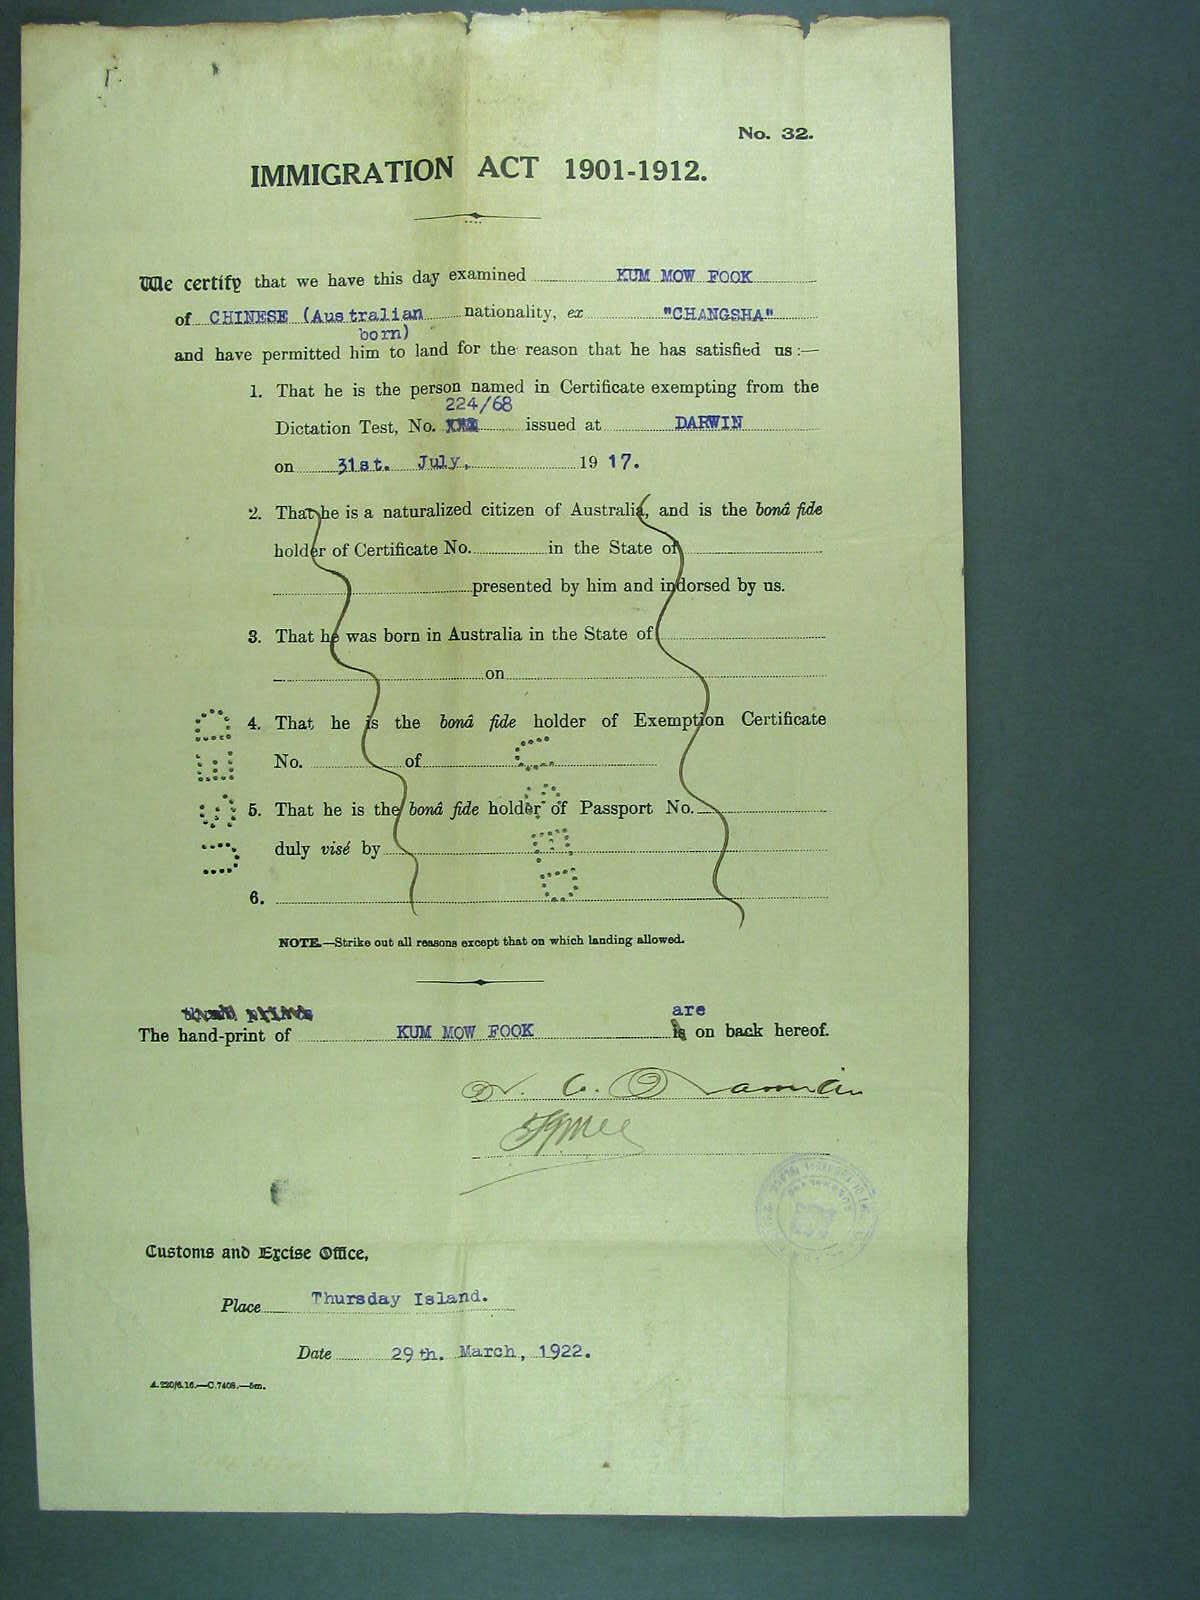 No. 32.
IMMIGRATION ACT 1901-1912.
We certify that we have this day examined KUM MOW FOOK
of CHINESE (Australian born) nationality, ex "CHANGSHA"
and have permitted him to land for the reason that he has satisfied us :—
1. That he is the person named in Certificate exempting from the
224/68
Dictation Test, No. issued at DARWIN
on 31st. July, 1917.
2. That he is a naturalized citizen of Australia, and is the bonâ fide
holder of Certificate No. in the State of
presented by him and indorsed by us.
3. That he was born in Australia in the State of
on
4. That he is the bonâ fide holder of Exemption Certificate
No. of
5. That he is the bonâ fide holder of Passport No.
duly visé by
6.
USED
USED
NOTE.—Strike out all reasons except that on which landing allowed.
are
The hand-print of KUM MOW FOOK is on back hereof.
Customs and Excise Office,
Place Thursday Island.
Date 29th. March, 1922.
A.220/6.16.—C.7408.—5m.